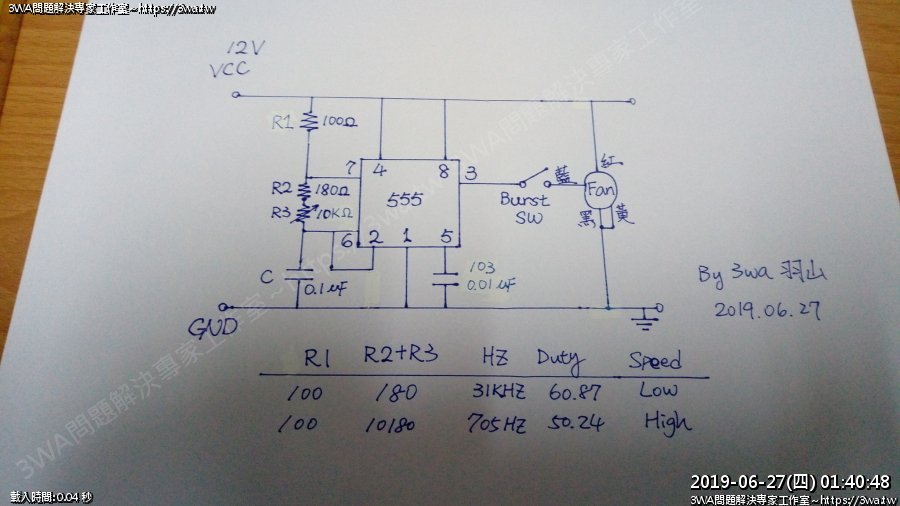 3WA問題解決專家工作室~https://3wa.tw
12V
VCC
R1 100Ω
7 4 8 3
藍
紅
R2 180Ω
555
Fan
R3 10KΩ
Burst
SW
黑 黃
6 2 1 5
C 0.1uF
103
0.01uF
By 3wa 羽山
2019.06.27
GND
R1 R2+R3 HZ Duty Speed
100 180 31KHZ 60.87 Low
100 10180 705HZ 50.24 High
3WA問題解決專家工作室~https://3wa.tw
載入時間:0.04 秒
2019-06-27(四) 01:40:48
3WA問題解決專家工作室~https://3wa.tw